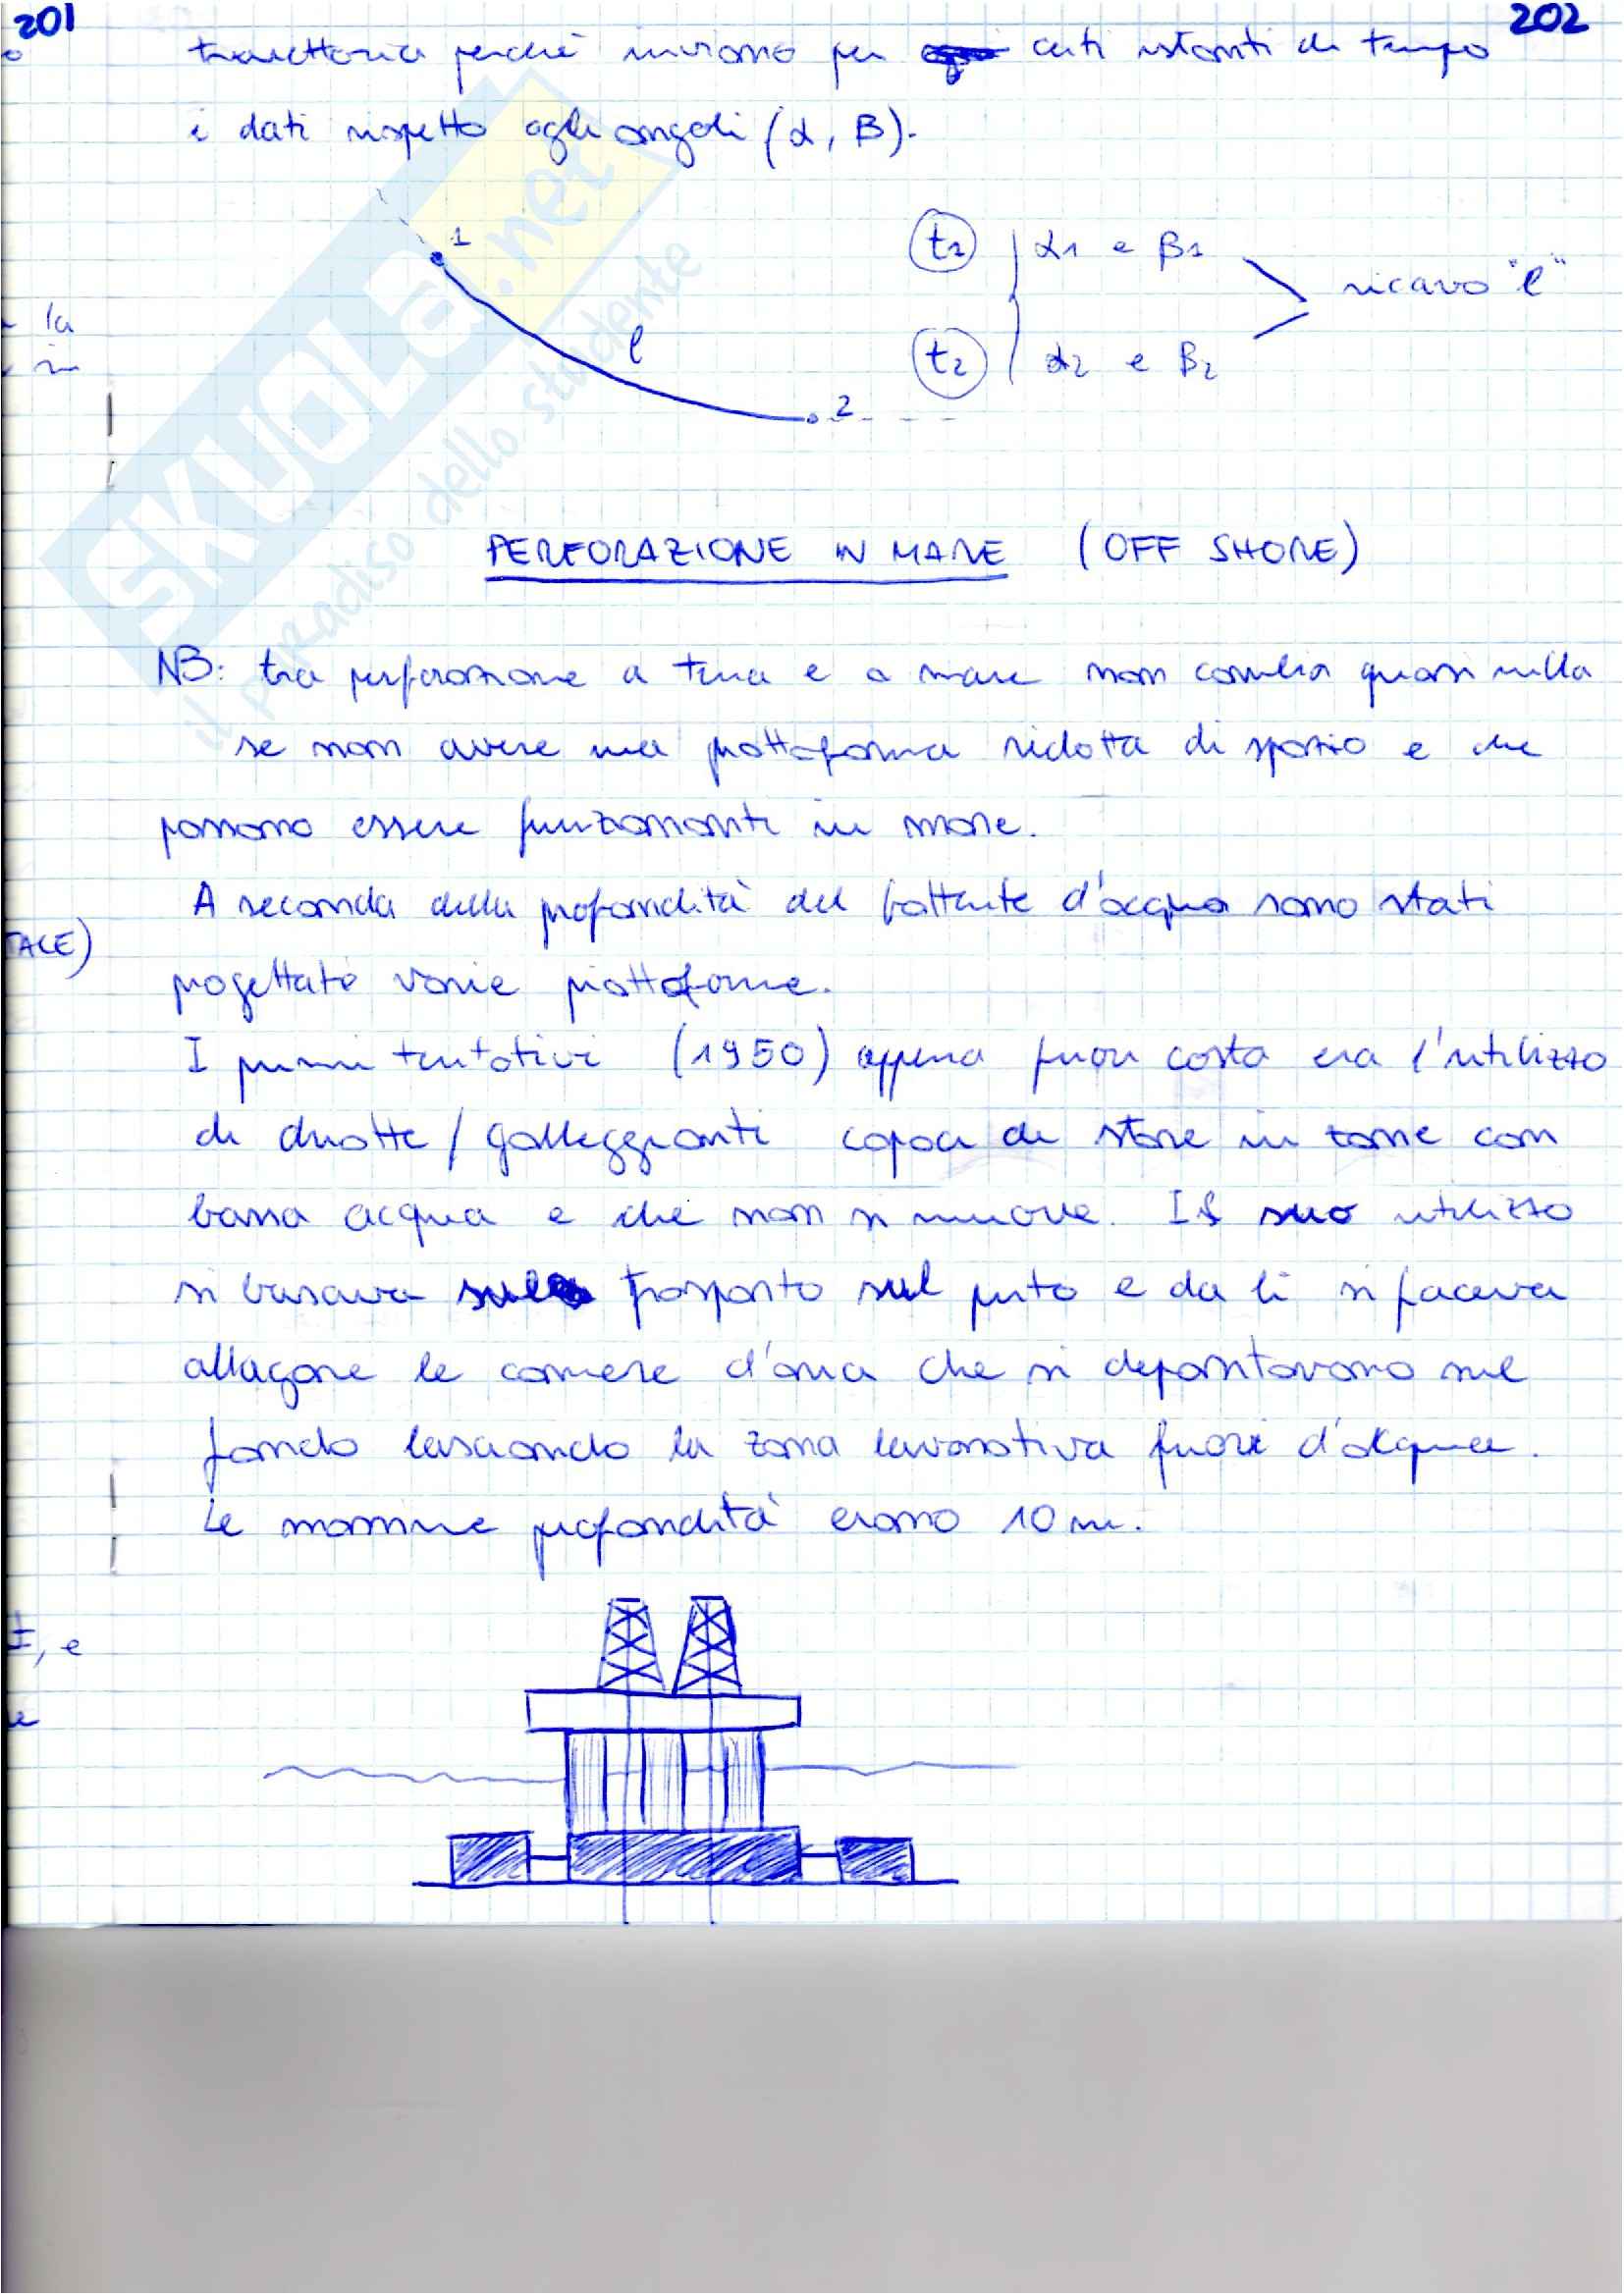 201
202
traiettoria perché inviano per certi istanti di tempo
i dati rispetto agli angoli (α, β).
1
l
2
t2 α1 e β1
t2 α2 e β2
ricavo "l"
PERFORAZIONE IN MARE (OFF SHORE)
NB: tra perforazione a terra e a mare non cambia quasi nulla
se non avere una piattaforma ridotta di spazio e che
possano essere funzionanti in mare.
A seconda della profondità del battente d'acqua sono stati
progettate varie piattaforme.
I primi tentativi (1950) appena fuori costa era l'utilizzo
di chiatte / galleggianti capaci di stare in zone con
bassa acqua e che non si muove. Il suo utilizzo
si basava trasporto sul posto e da lì si faceva
allagare le camere d'aria che si depositavano sul
fondo lasciando la zona lavorativa fuori d'acqua.
Le massime profondità erano 10 m.
o
la
in
TALE)
I, e
e
SKUOLA.net
il paradiso dello studente